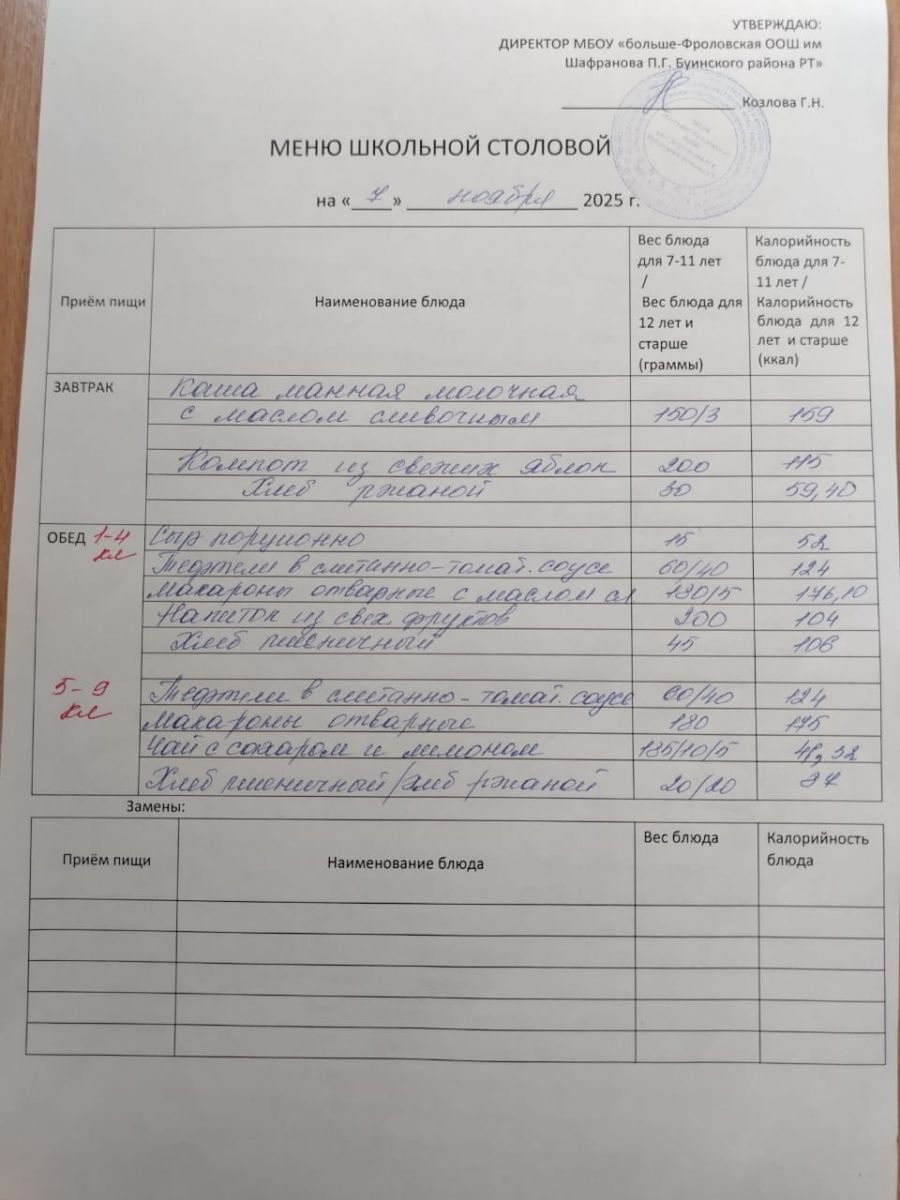 УТВЕРЖДАЮ:
ДИРЕКТОР МБОУ «больше-Фроловская ООШ им
Шафранова П.Г. Буинского района РТ»
Козлова Г.Н.
МЕНЮ ШКОЛЬНОЙ СТОЛОВОЙ
на « 7 » ноября 2025 г.
Приём пищи
Наименование блюда
Вес блюда
для 7-11 лет
/
Вес блюда для
12 лет и
старше
(граммы)
Калорийность
блюда для 7-
11 лет /
Калорийность
блюда для 12
лет и старше
(ккал)
ЗАВТРАК Каша манная молочная
с маслом сливочным 150/3 159
Компот из свежих яблок 200 115
Хлеб ржаной 30 59,40
ОБЕД 1-4 Сыр порционно 15 52
кл Тефтели в сметанно-томат. соусе 60/40 124
Макароны отварные с маслом сл 180/5 176,10
Напиток из свех фруктов 200 104
Хлеб пшеничный 45 106
5-9 Тефтели в сметанно-томат. соусе 60/40 124
кл Макароны отварные 180 175
Чай с сахаром и лимоном 185/10/5 41,32
Хлеб пшеничный/хлеб ржаной 20/20 37
Замены:
Приём пищи
Наименование блюда
Вес блюда
Калорийность
блюда